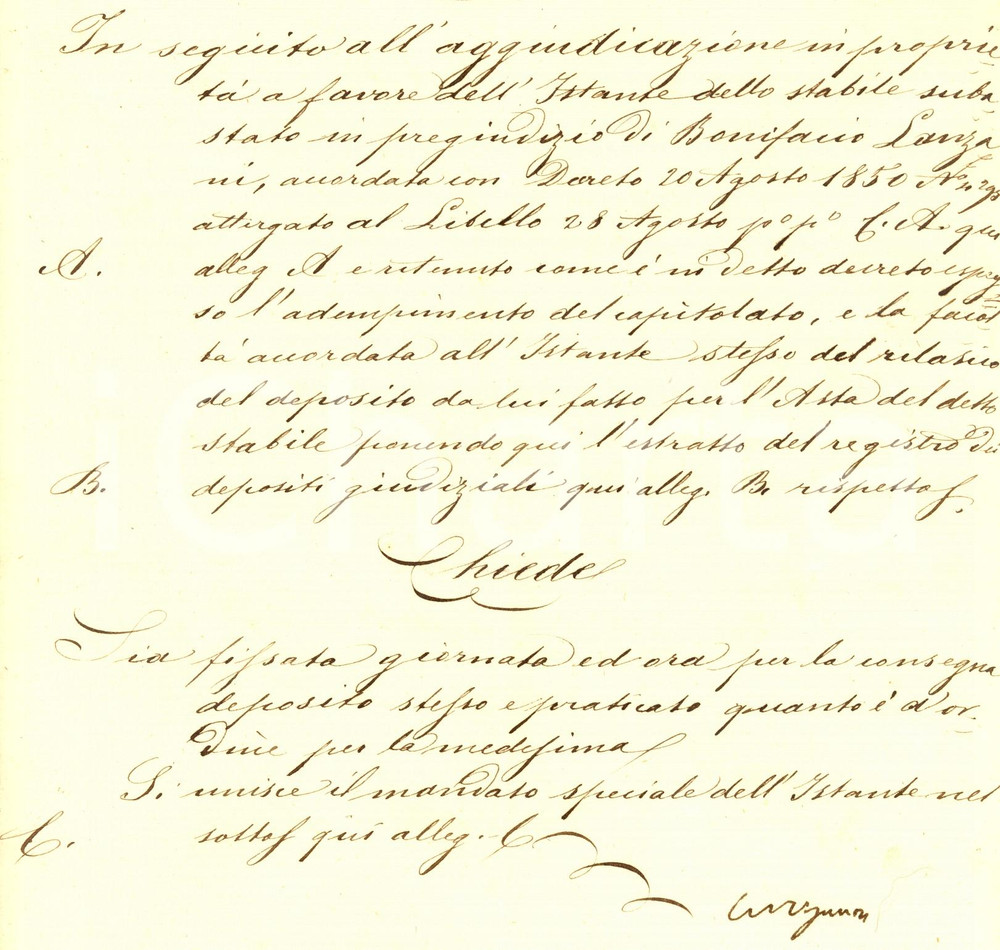 In seguito all'aggiudicazione in proprie=
tà a favore dell'Istante dello stabile suba=
stato in pregiudizio di Bonifacio Lanza=
ni, accordata con Decreto 20 Agosto 1850 N.°
attergato al Libello 28 Agosto p.° p.° C. A. qui
A. alleg A e ritenuto come è in detto decreto espres=
so l'adempimento del capitolato, e la facol=
tà accordata all'Istante stesso del rilascio
del deposito da lui fatto per l'Asta del detto
stabile ponendo qui l'estratto del registro dei
B. depositi giudiziali qui alleg. B. rispettos.
Chiede
Sia fissata giornata ed ora per la consegna
deposito stesso e praticato quanto è d'or=
dine per la medesima
Si unisce il mandato speciale dell'Istante nel
C. sottos qui alleg. C
iCharta